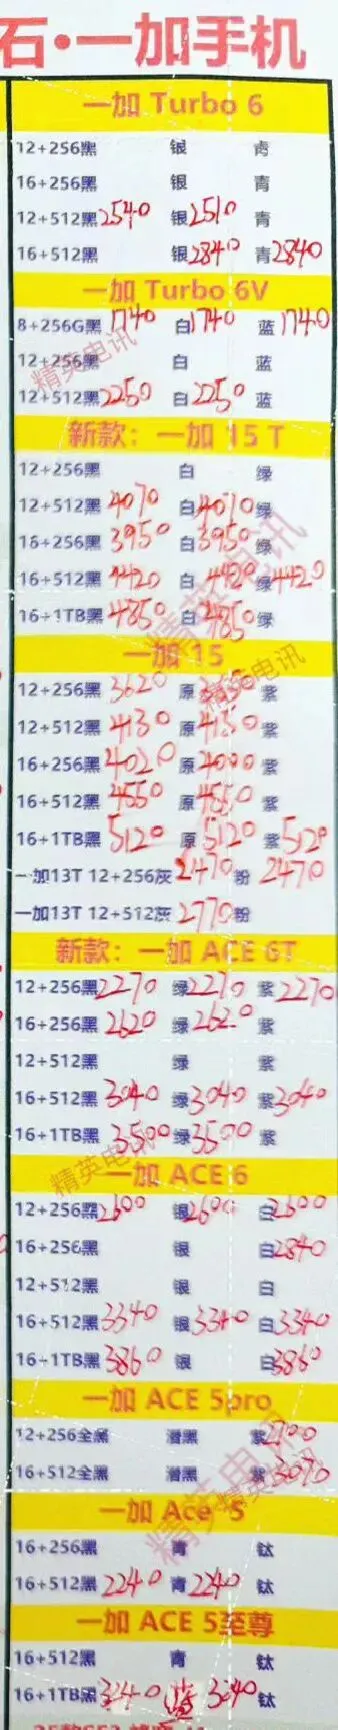 石·一加手机
一加 Turbo 6
12+256黑 银 青
16+256黑 银 青
12+512黑2540 银2510 青
16+512黑 银2840 青2840
一加 Turbo 6V
8+256G黑1740 白1740 蓝1740
12+256黑 白 蓝
12+512黑2250 白2250 蓝
新款：一加 15 T
12+256黑 白 绿
12+512黑4070 白4070绿
16+256黑3950 白3950绿
16+512黑4420 白4420绿4420
16+1TB黑4850 白4850绿
一加 15
12+256黑3620 原 紫
12+512黑4130 原4130 紫
16+256黑4020 原 紫
16+512黑4550 原4550 紫
16+1TB黑5120 原5120 紫5120
一加13T 12+256灰2470粉2470
一加13T 12+512灰2770粉
新款：一加 ACE 6T
12+256黑2270 绿2270 紫2270
16+256黑2620 绿2620 紫
12+512黑 绿 紫
16+512黑3040 绿3040 紫3040
16+1TB黑3500绿3500 紫
一加 ACE 6
12+256黑2600 银2600 白2600
16+256黑 银 白2840
12+512黑 银 白
16+512黑3340 银3340 白3340
16+1TB黑3860 银 白3860
一加 ACE 5pro
12+256全黑 潜黑 紫2700
16+512全黑 潜黑 紫3070
一加 Ace 5
16+256黑 青 钛
16+512黑2240青2240 钛
一加 ACE 5至尊
16+512黑 青 钛
16+1TB黑 蓝3040钛
精英电讯